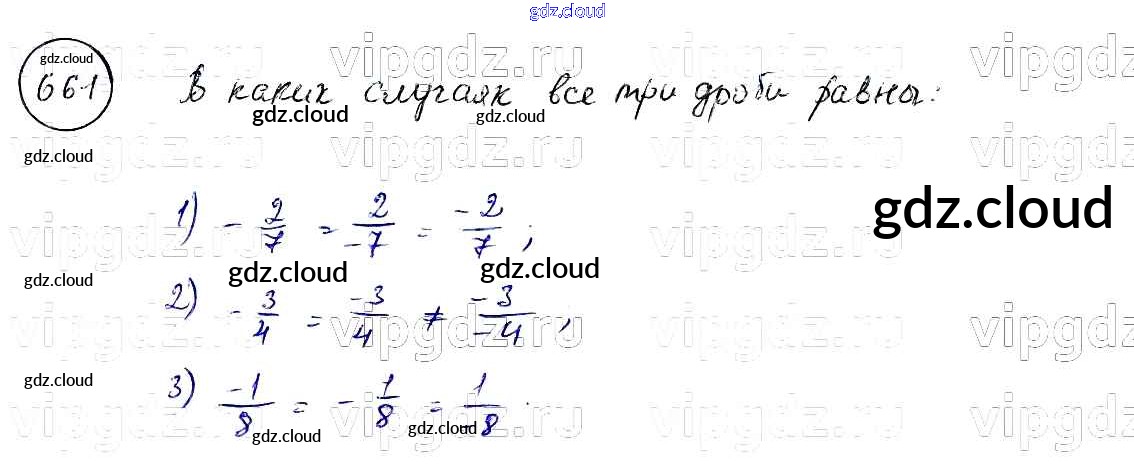 gdz.cloud
vipgdz.ru vipgdz.ru vipgdz.ru vipgdz
gdz.cloud
661 В каких случаях все три дроби равны:
gdz.cloud gdz.cloud
gdz.cloud
vipgdz.ru vipgdz.ru vipgdz.ru vipgdz
1) - 2/7 = 2/-7 = -2/7 ;
gdz.cloud
vipgdz.ru vipgdz.ru vipgdz.ru vipgdz
gdz.cloud gdz.cloud gdz.cloud
2) - 3/4 = -3/4 ≠ -3/-4 ;
vipgdz.ru vipgdz.ru vipgdz.ru vipgdz
gdz.cloud
3) -1/8 = - 1/8 = 1/-8 .
vipgdz.ru vipgdz.ru vipgdz.ru vipgdz
gdz.cloud gdz.cloud